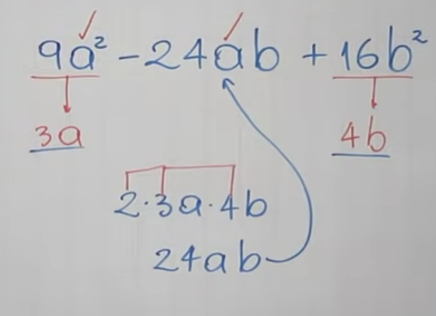 9a² - 24ab + 16b²
3a 4b
2·3a·4b
24ab